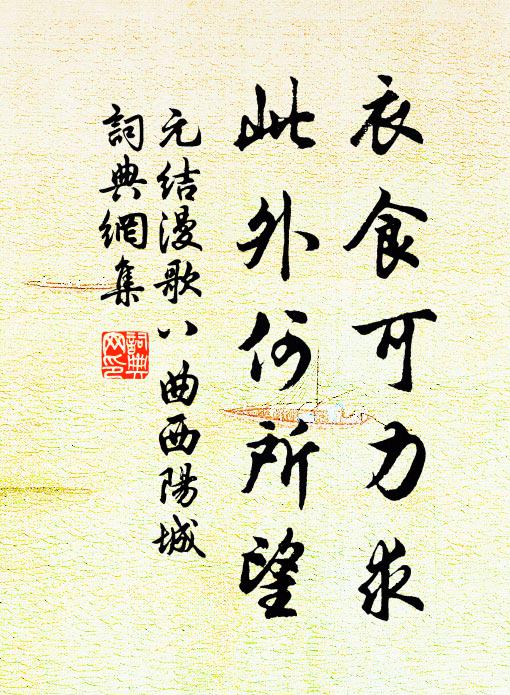 衣食可力求
此外何所望
元结漫歌八曲西陽城
詞典網集
詞典网印